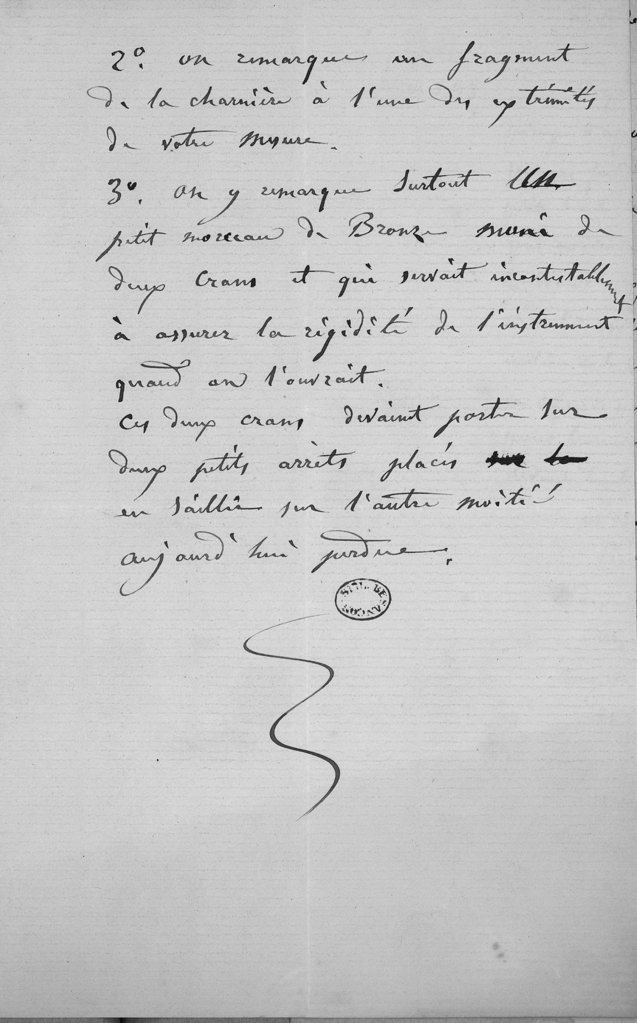 2º. on remarque un fragment
de la charnière à l'une des extrémités
de votre mesure.
3º. on y remarque surtout un
petit morceau de Bronze muni de
deux crans et qui servait incontestablement
à assurer la rigidité de l'instrument
quand on l'ouvrait.
ces deux crans devaient porter sur
deux petits arrêts placés sur le
en saillie sur l'autre moitié
aujourd'hui perdue.
BIBL. BESANÇON